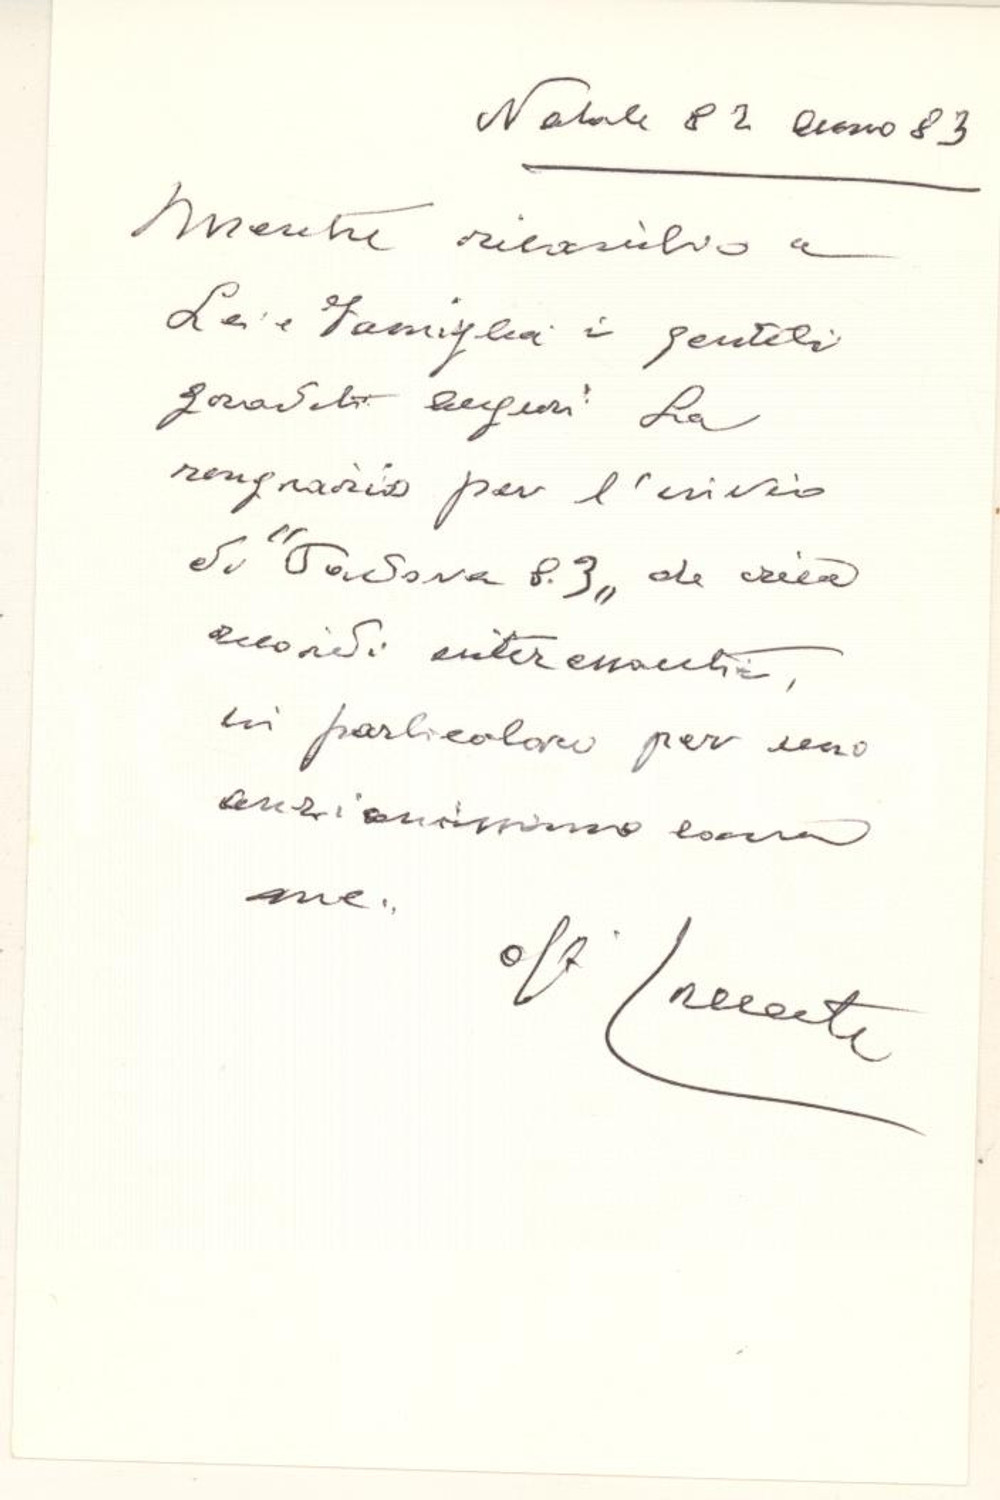 Natale 82 anno 83
Mentre ricambio a
Lei e Famiglia i gentili
graditi auguri La
ringrazio per l'invio
di "Padova 83„ che ricca
ricordi interessanti,
in particolare per uno
anzianissimo come
me.